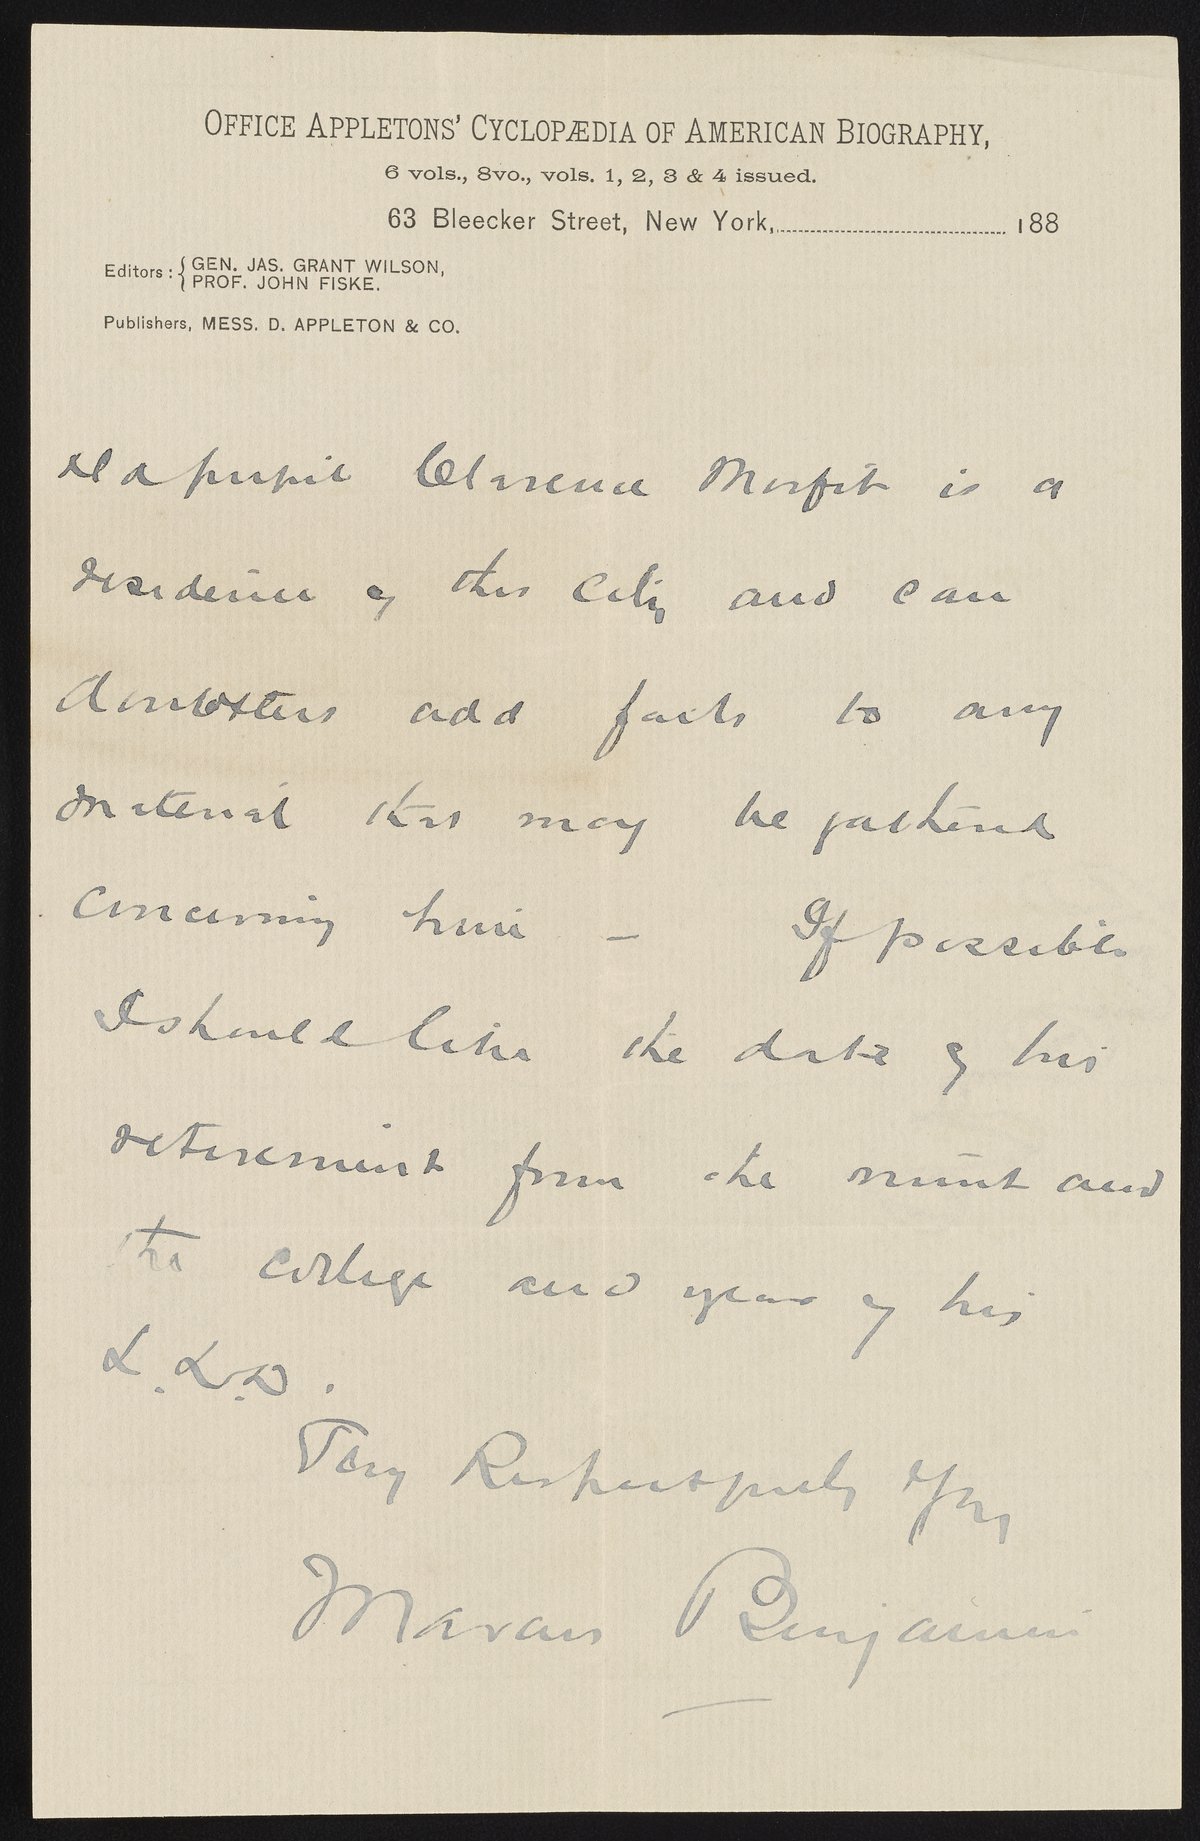 OFFICE APPLETONS' CYCLOPÆDIA OF AMERICAN BIOGRAPHY,
6 vols., 8vo., vols. 1, 2, 3 & 4 issued.
63 Bleecker Street, New York, 188
Editors: { GEN. JAS. GRANT WILSON,
PROF. JOHN FISKE.
Publishers, MESS. D. APPLETON & CO.
old pupil Clarence Morfit is a
residence of this City and can
doubtless add facts to any
material that may be gathered
concerning him – If possible
I should like the date of his
retirement from the mint and
the college and year of his
L.L.D.
Very Respectfully Yrs
Marcus Benjamin